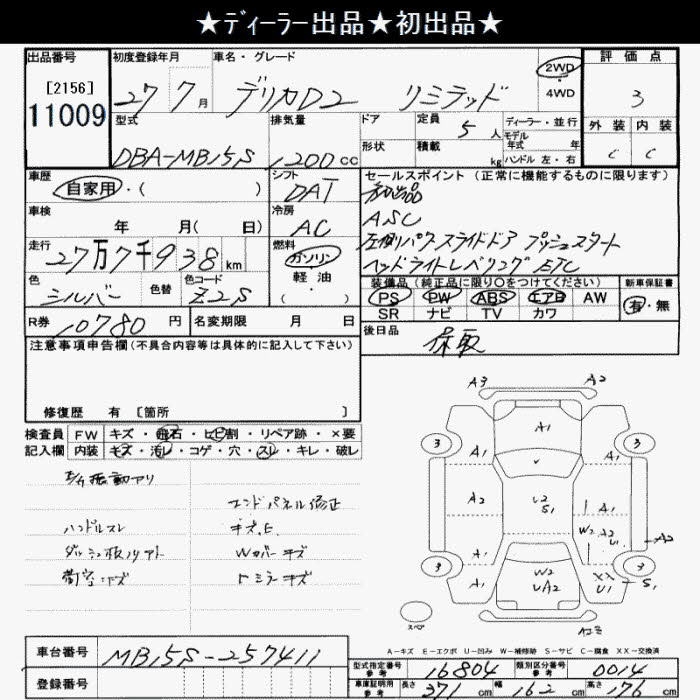 ★ディーラー出品★初出品★
出品番号 初度登録年月 車名・グレード 評価点
[2156] 27 7月 デリカD2 リミテッド 2WD 3
11009 4WD
型式 排気量 ドア 定員 5人 ディーラー・並行 外装 内装
モデル
DBA-MB15S 1200cc 形状 積載 kg 年式 年 C C
ハンドル 左・右
車歴 シフト セールスポイント(正常に機能するものに限ります)
自家用・( ) DAT 初出品
車検 冷房 ASC
年 月( 日) AC 左側パワースライドドア プッシュスタート
走行 燃料 ヘッドライトレベリング ETC
27万7千938km ガソリン
色 色替 色コード 軽・油 装備品(純正品に限り○をつけてください) 新車保証書
シルバー Z2S ( ) PS PW ABS エアB AW 有・無
SR ナビ TV カワ
R券 10780円 名変期限 月 日 後日品
注意事項申告欄(不具合内容等は具体的に記入して下さい) 保取
修復歴 有 [箇所 ]
検査員 FW キズ・飛石・ヒビ割・リペア跡・×要
記入欄 内装 キズ・汚レ・コゲ・穴・スリ・キレ・破レ
振動アリ
エンドパネル修正
ハンドルスレ キズ.E.
Wカバーキズ
キズ ドミラーキズ
A3 A2
A1
3 A1 A1 3
A2 U2 A1
S1
A1 W2 A2 U1 A2
3 A1 W2 XX 3 S1
UA2 U1
スペア
A=キズ E=エクボ U=凹み W=補修跡 S=サビ C=腐食 XX=交換済
車台番号 MB15S-257411
型式指定番号 参考 16804 類別区分番号 参考 0014
登録番号
車庫証明用 参考 長さ 371cm 幅 162cm 高さ 176cm